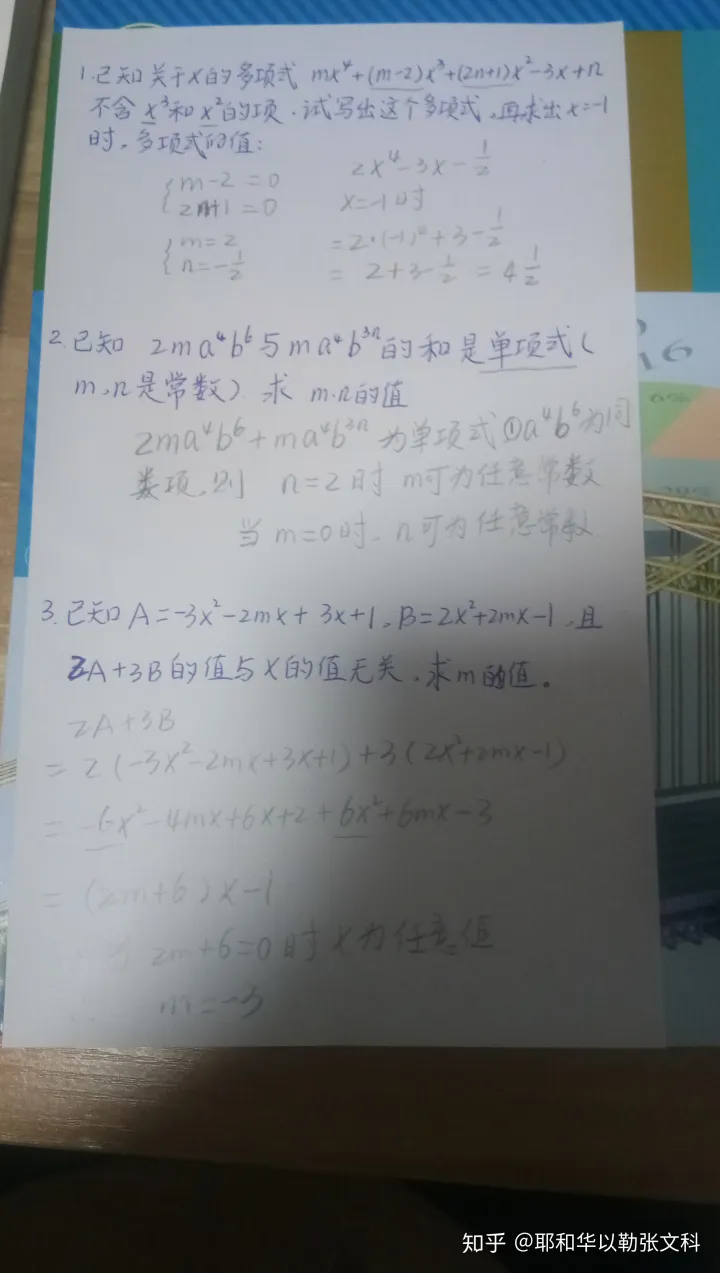 1.已知关于x的多项式 mx⁴+(m-2)x³+(2n+1)x²-3x+n
不含 x³和 x²的项.试写出这个多项式,再求出x=-1
时,多项式的值:
{m-2=0
2n+1=0
{m=2
n=-1/2
2x⁴-3x-1/2
x=-1时
=2·(-1)²+3-1/2
= 2+3-1/2 = 4 1/2
2.已知 2ma⁴b⁶与ma⁴b³ⁿ的和是单项式(
m,n是常数) 求 m.n的值
2ma⁴b⁶+ma⁴b³ⁿ为单项式①a⁴b⁶为同
类项,则 n=2时 m可为任意常数
当 m=0时.n可为任意常数
3.已知A=-3x²-2mx+3x+1,B=2x²+2mx-1,且
2A+3B的值与x的值无关.求m的值。
2A+3B
=2(-3x²-2mx+3x+1)+3(2x²+2mx-1)
=-6x²-4mx+6x+2+6x²+6mx-3
=(2m+6)x-1
当 2m+6=0时x为任意值
m=-3
16
6%
知乎 @耶和华以勒张文科